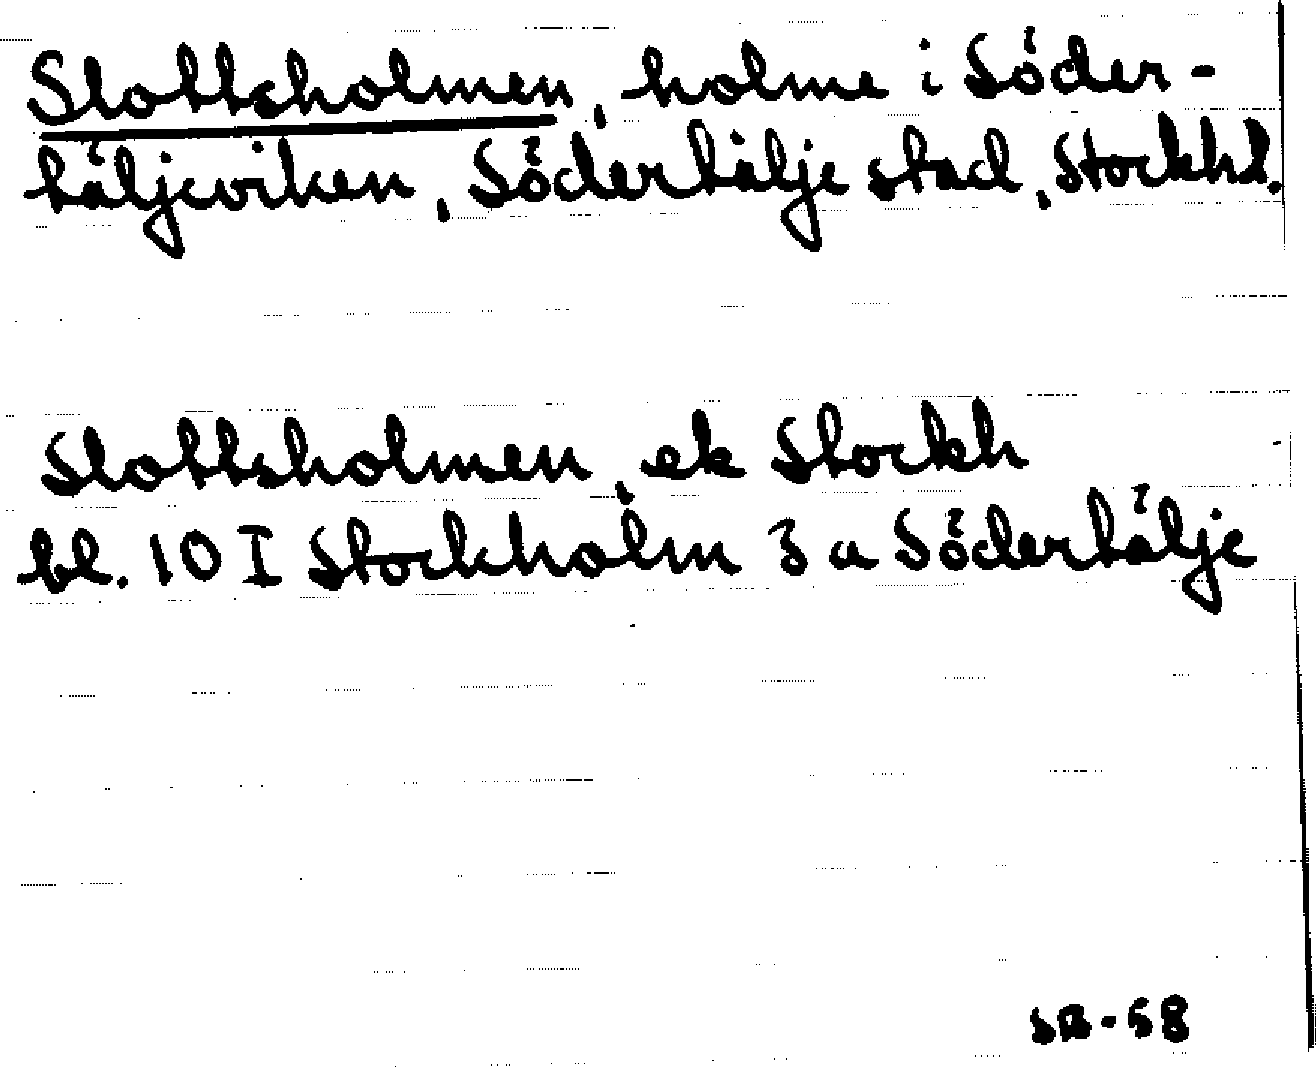 Slottsholmen, holme i Söder-
täljeviken, Södertälje stad, Stockh.l.
Slottsholmen, ek Stockh
bl. 10 I Stockholm 3 a Södertälje
SB-58